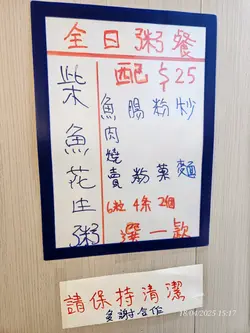 全日粥餐
柴魚花生粥
配 $25
魚肉燒賣
6粒
腸粉
4条
粉菓
2個
炒麵
選一款
請保持清潔
多謝合作